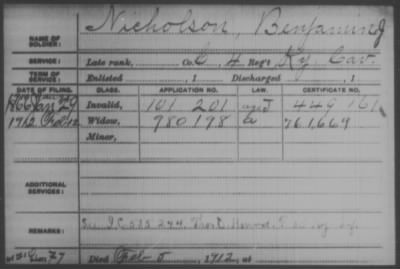 NAME OF SOLDIER: Nicholson, Benjamin J
SERVICE: Late rank, Co. C, 4 Reg't Ky. Cav.
TERM OF SERVICE: Enlisted , 1 Discharged , 1
DATE OF FILING. CLASS. APPLICATION NO. LAW. CERTIFICATE NO.
Jan 29 Invalid, 101 201 449 161
1912 Feb 12 Widow, 980 198 a 761,669
Minor,
ADDITIONAL SERVICES:
REMARKS: See I.C. 575 294,
Died Feb 5, 1912, at